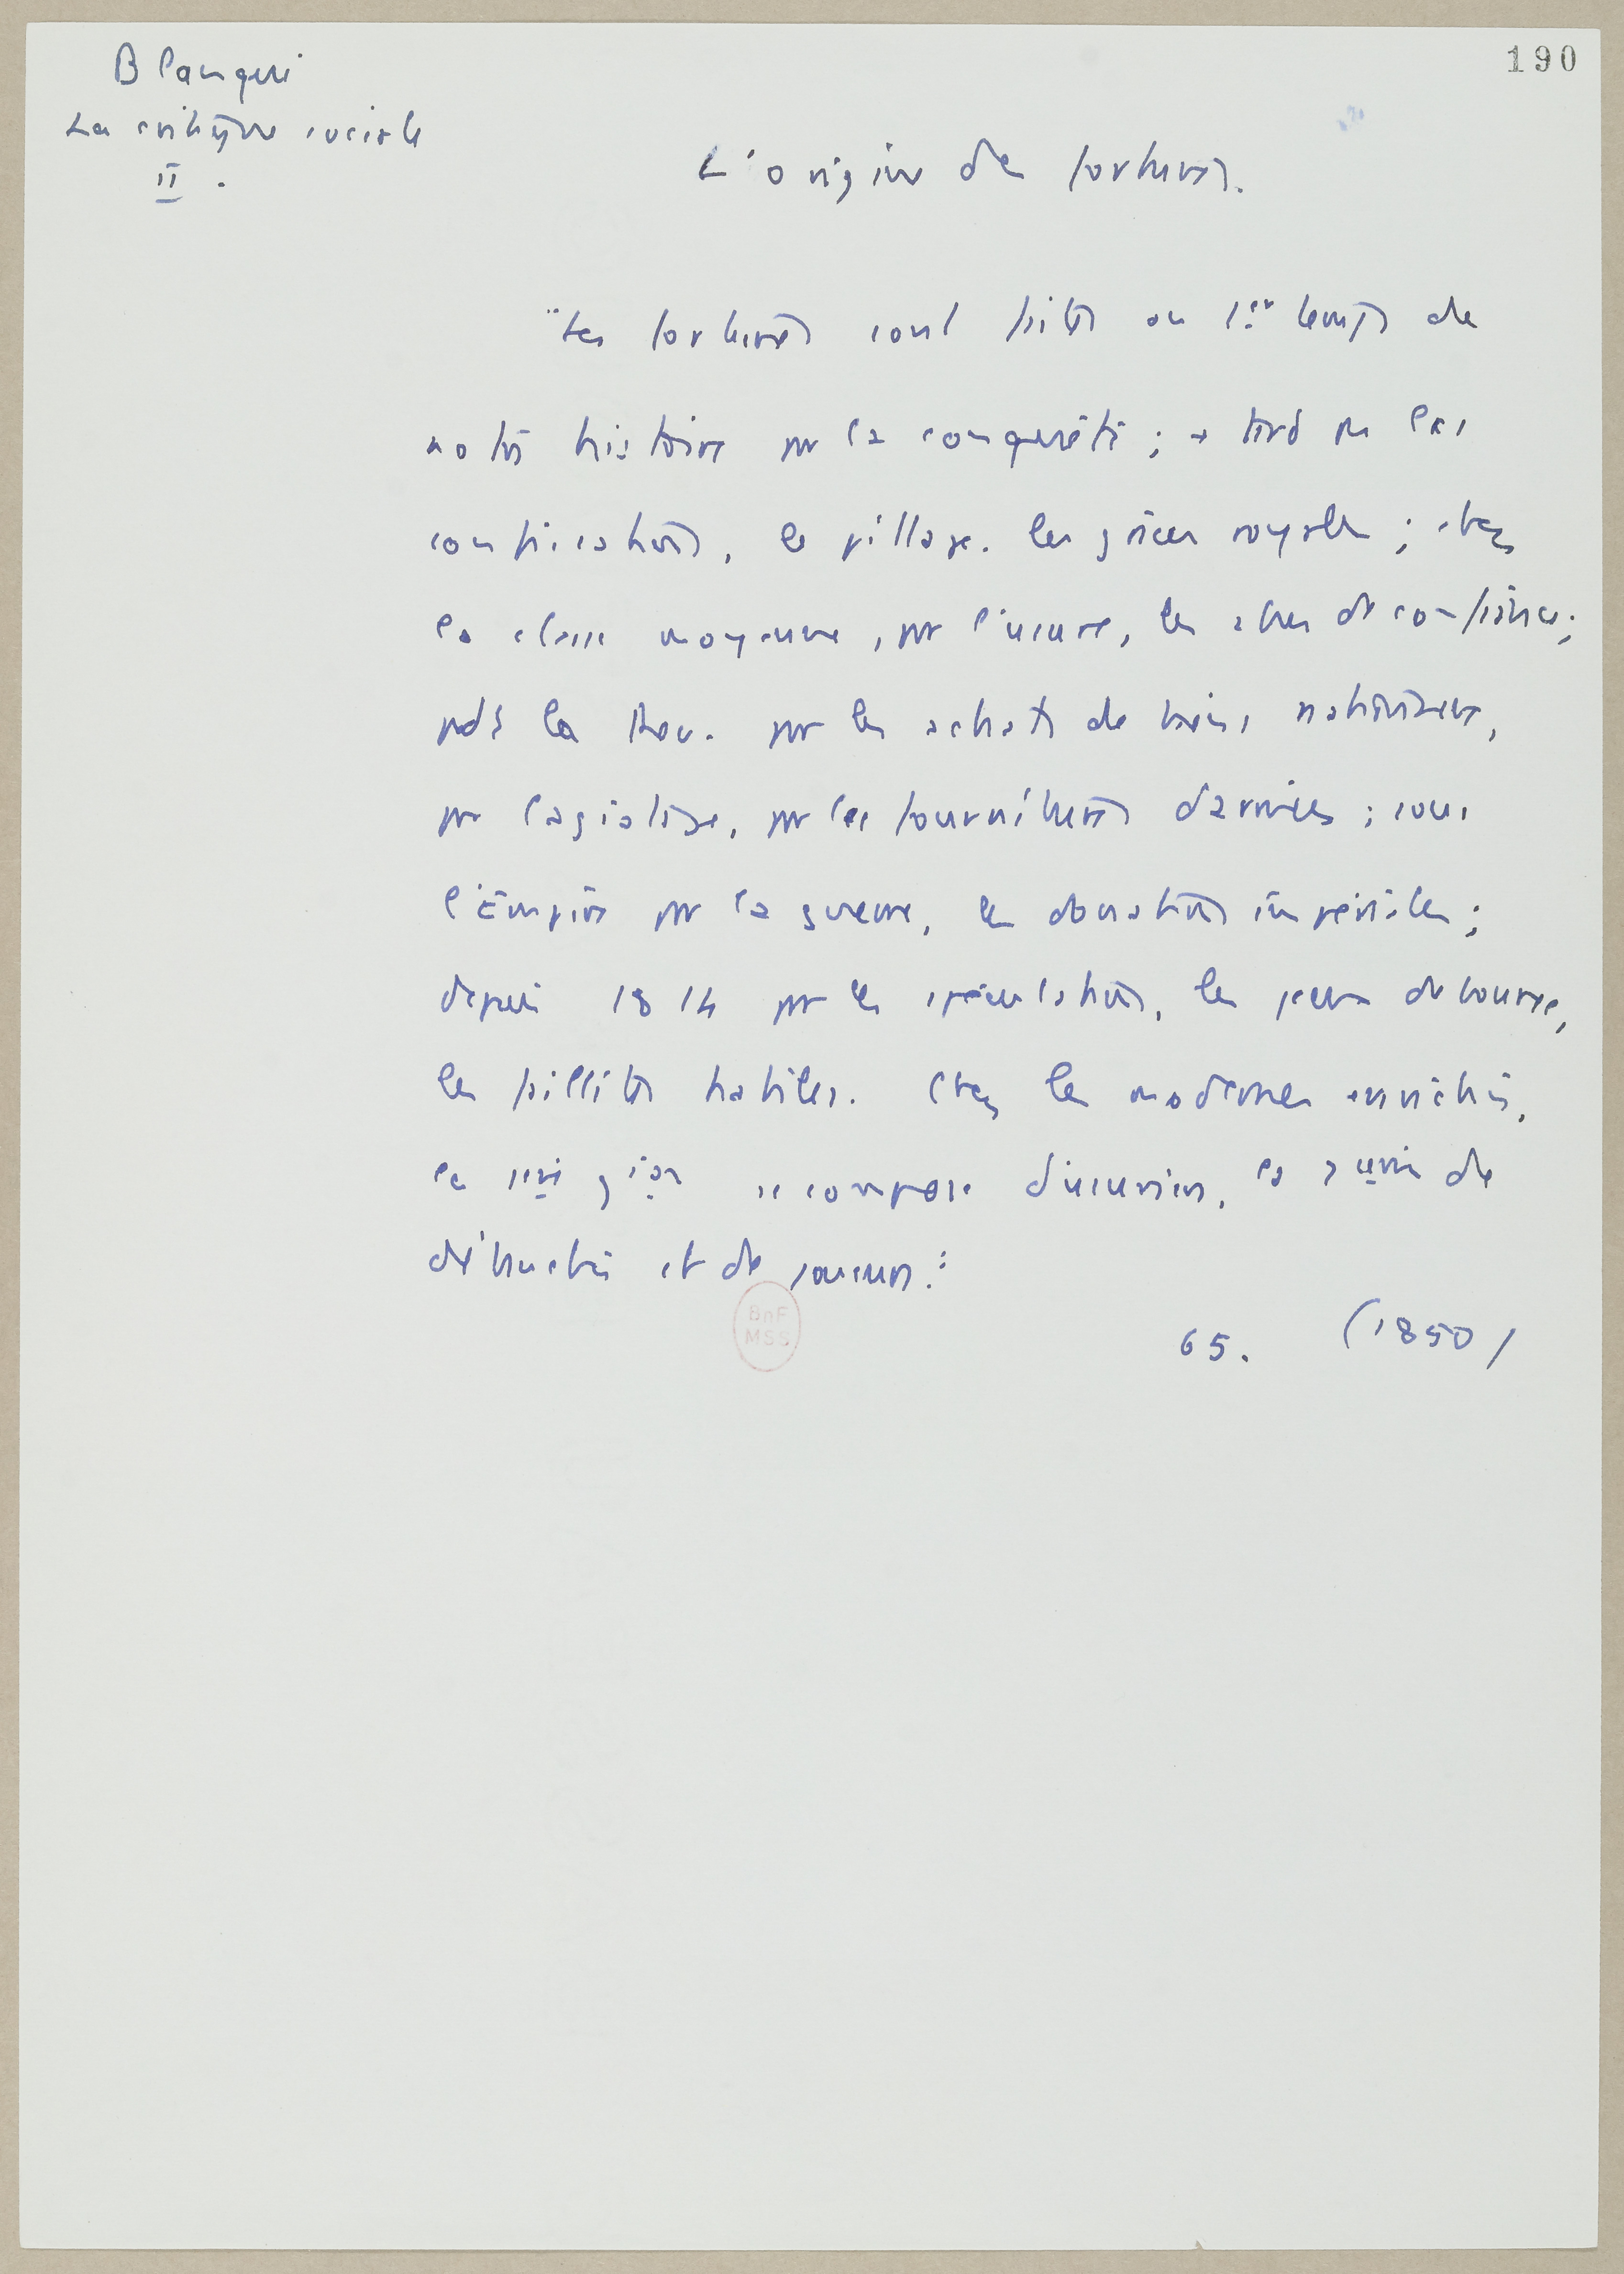 190
Blanqui
La critique sociale
II.
L'origine des fortunes.
"Les fortunes sont faites au 1er temps de
notre histoire par la conquête; + tard par les
confiscations, le pillage, les grâces royales; chez
la classe moyenne, par l'usure, les abus de confiance;
pdt la Rev. par les achats de biens nationaux,
par l'agiotage, par les fournitures d'armées; sous
l'Empire par la guerre, les donations impériales;
depuis 1814 par les spéculations, les jeux de bourse,
les faillites habiles. Chez les modernes enrichis,
la 1ère gion se compose d'usuriers, la 2ème de
et de joueurs."
65. (1850)
BnF
MSS